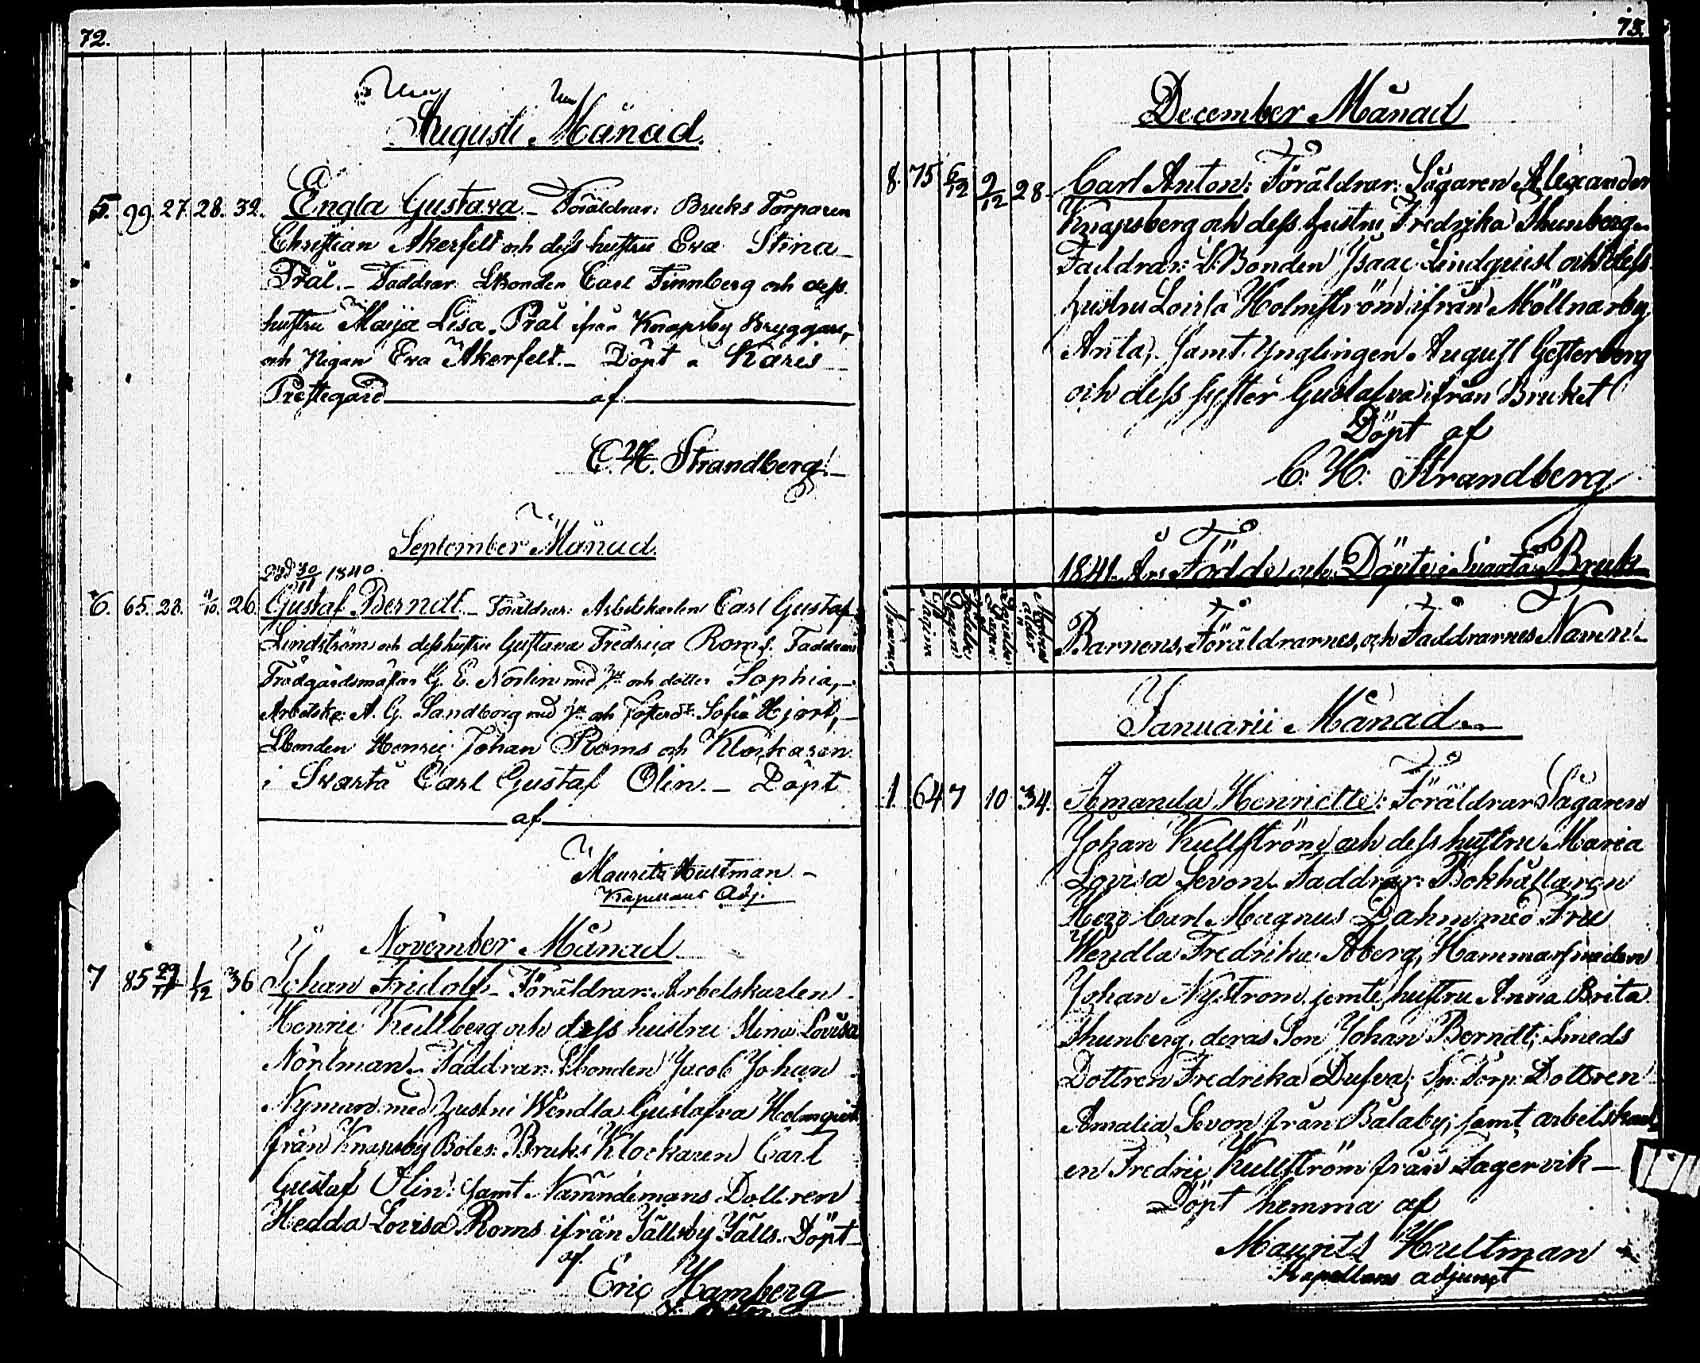 72.
Augusti Månad.
5. 99. 27. 28. 32. Engla Gustava. Föräldrar: Bruks Torparen
Christian Åkerfelt och dess hustru Eva Stina
Prål. Faddrar Lbonden Carl Finnberg och dess
hustru Maija Lisa Prål ifrån Knapsby Bryggars,
och Pigan Eva Åkerfelt. Döpt a Karis
Prestegård af
C. H. Strandberg.
September Månad.
30/11 1840.
6. 65. 28. 4/10. 26. Gustaf Berndt. Föräldrar: Arbetskarlen Carl Gustaf
Lindström och dess hustru Gustava Fredrica Roms. Faddrar
Trädgårdsmästar G. E. Norlin med och dotter Sophia,
Arbetsk: A. G. Sandborg med och Fosterd: Sofia Hjort,
Lbonden Henric Johan Roms och Klockaren
i Svartå Carl Gustaf Olin. Döpt
af
Maurits Hultman
Kapellans Adj.
November Månad
7 85 29/11 1/12 36 Johan Fridolf. Föräldrar: Arbetskarlen
Henric Kullberg och dess hustru Stina Lovisa
Nordman. Faddrar: Lbonden Jacob Johan
Nyman med Hustru Wendla Gustafva Holmqvist
från Knapsby Böles: Bruks Klockaren Carl
Gustaf Olin: Samt Nämndemans Dottren
Hedda Lovisa Roms ifrån Jällsby Jälls. Döpt
af.
Eric Hamberg
73.
December Månad
8. 75 6/12 9/12 28. Carl Anton: Föräldrar: Sågaren Alexander
Knapsberg och dess hustru Fredrika Thunberg
Faddrar: L:Bonden Isaac Lindqvist och dess
hustru Lovisa Holmström ifrån Möllnarby
Anta, Samt Ynglingen August Gesterberg
och dess syster Gustafva ifrån Bruket
Döpt af
C. H. Strandberg
1841. Års Födde och Döpte i Svartå Bruk
Barnens, Föräldrarnes, och Faddrarnes Namn
Januarii Månad
1 64 7 10 34. Amanda Henriette: Föräldrar Sågaren
Johan Kullström och dess hustru Maria
Lovisa Sevon. Faddrar: Bokhållaren
Herr Carl Magnus Dahm med Fru
Wendla Fredrika Åberg, Hammarsmeden
Johan Nyström jemte hustru Anna Brita
Thunberg, deras Son Johan Berndt; Smeds
Dottren Fredrika Dufva; Sp: Torp: Dottren
Amalia Sevon från Bålaby; samt arbetskarl
en Fredric Kullström från Fagervik
Döpt hemma af
Maurits Hultman
Kapellans adjunct